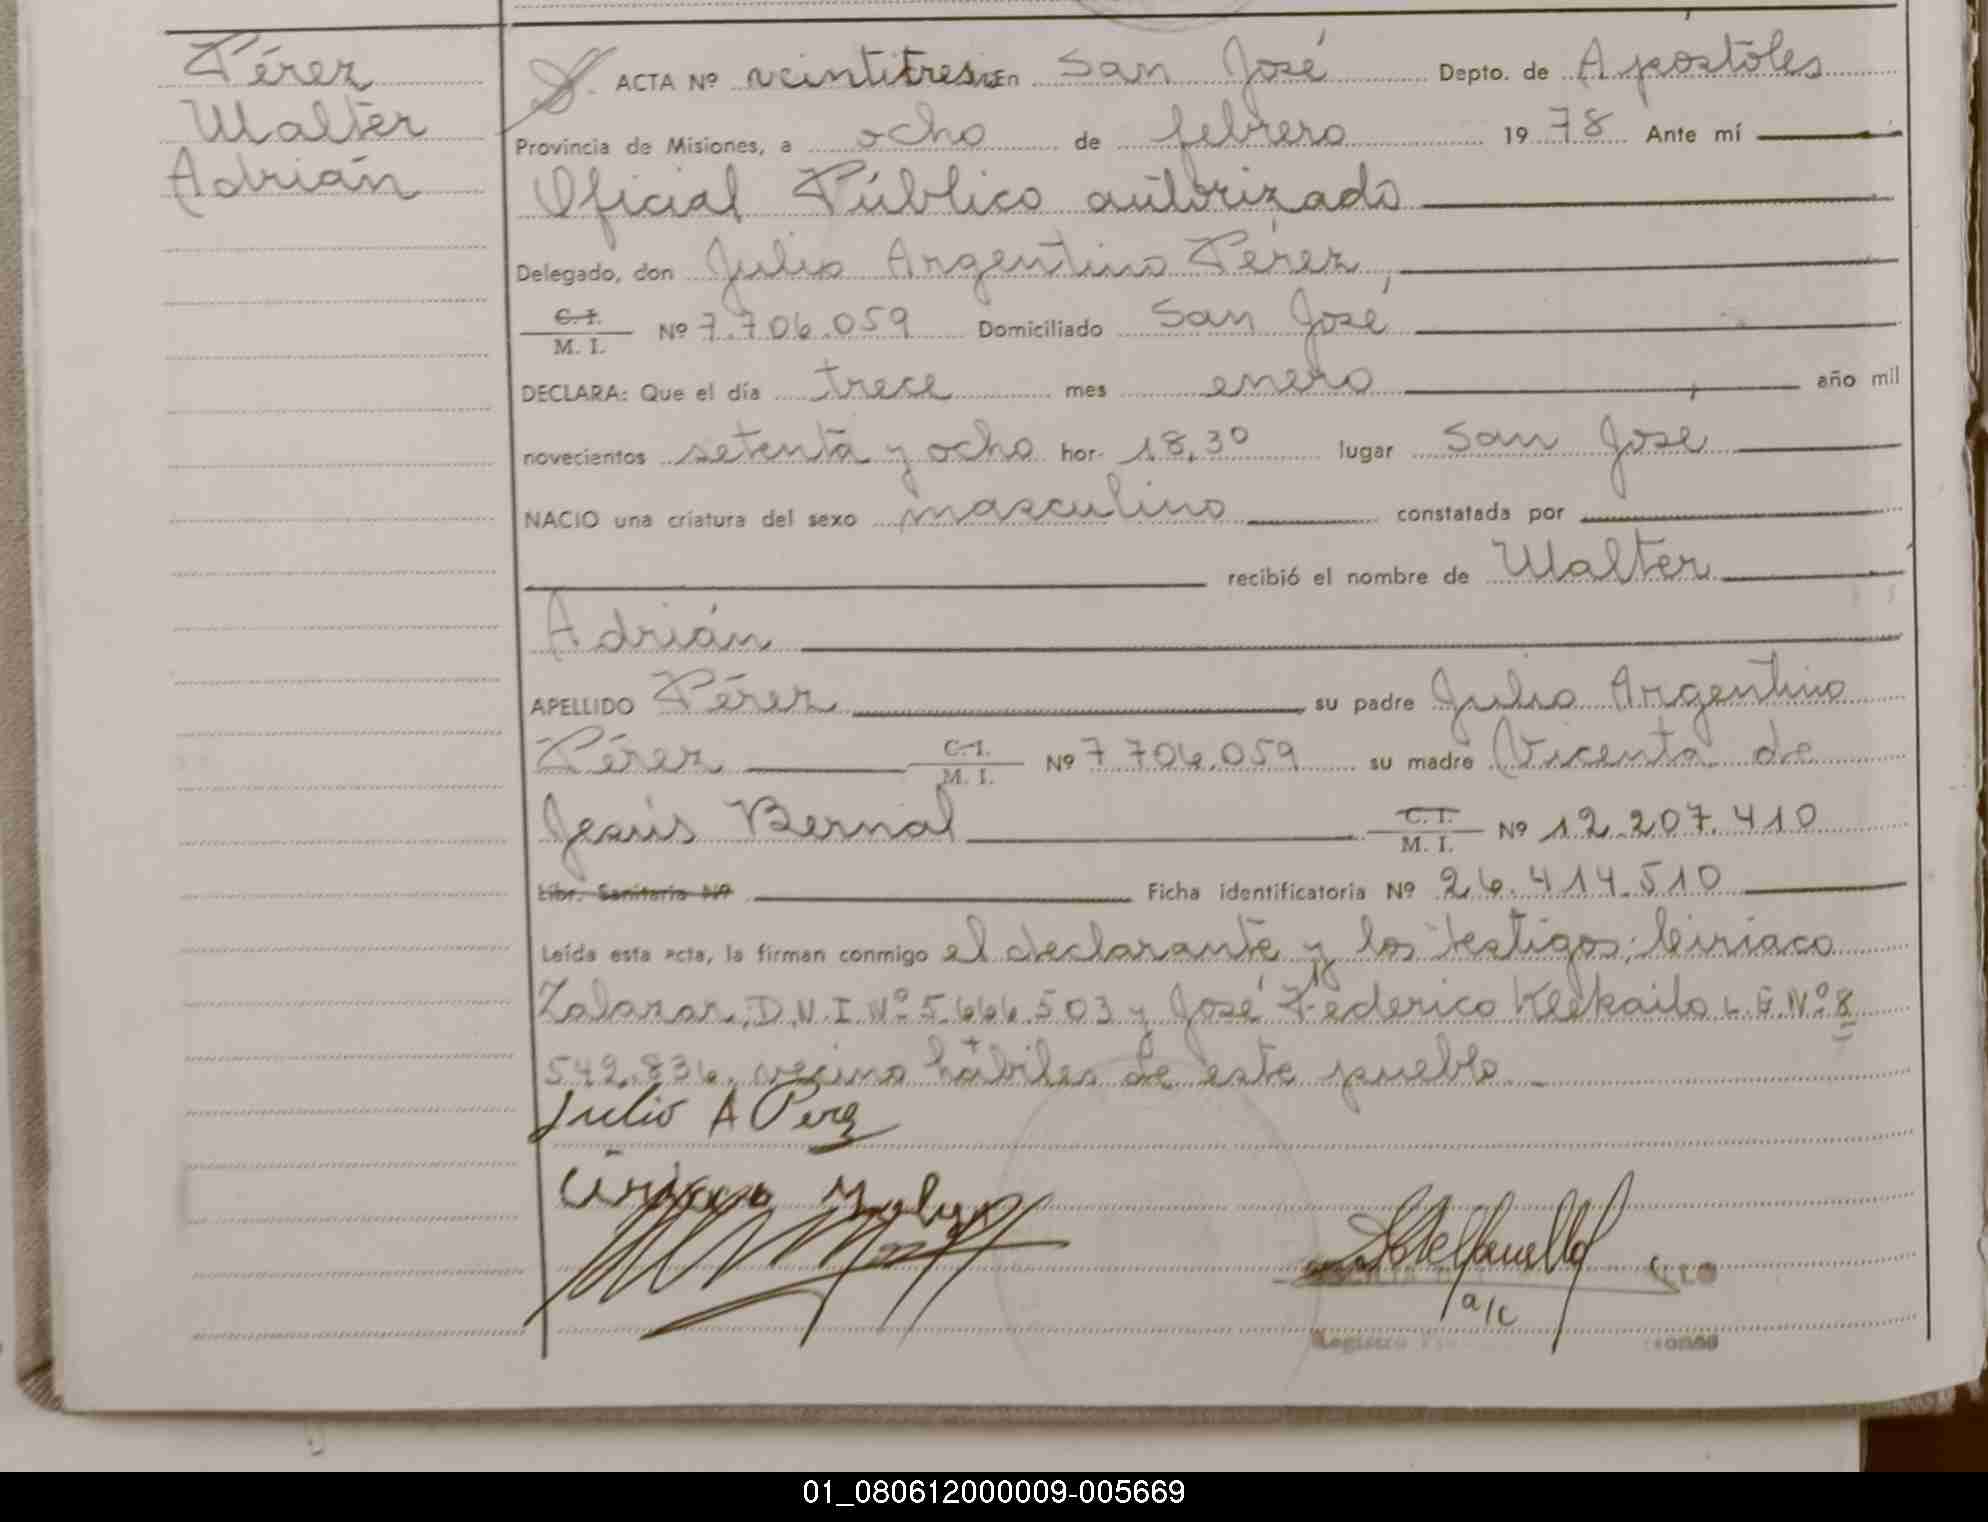 Pérez
Walter
Adrián
ACTA Nº veintitres En San José Depto. de Apostoles
Provincia de Misiones, a ocho de febrero 1978 Ante mí
Oficial Público autorizado
Delegado, don Julio Argentino Pérez,
C. I.
M. I. Nº 7.706.059 Domiciliado San José
DECLARA: Que el día trece mes enero, año mil
novecientos setenta y ocho hor. 18,30 lugar San Jose
NACIO una criatura del sexo masculino constatada por
recibió el nombre de Walter
Adrián
APELLIDO Pérez su padre Julio Argentino
Pérez C. I. M. I. Nº 7 706.059 su madre Vicenta de
Jesús Bernal C. I. M. I. Nº 12.207.410
Libr. Sanitaria Nº Ficha identificatoria Nº 26.414.510
Leída esta acta, la firman conmigo el declarante y los testigos; Ciriaco
Zalazar, D.N.I Nº 5.666.503 y José Federico L.E.Nº 8
542.836, vecino hábiles de este pueblo
Julio A Perez
Ciriaco
a/c
Registro
01_080612000009-005669